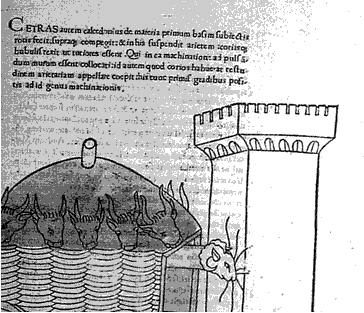 CETRAS autem calcedonius de materia primum basim subiectis
rotis fecit. supraq; compegit: & in his suspendit arietem coriisq;
bubulis texit ut tutiores essent. Qui in ea machinatione ad pulsā
dum murum essent collocati: id autem quod corios habuerat testu
dinem arietariam appellare coepit his tunc primis gradibus posi
tis ad id genus machinationis.